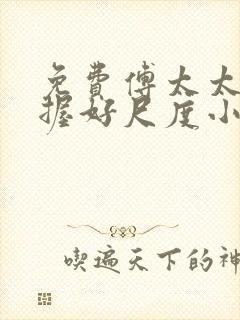 免費傅太太
握好尺度小
喫遍天下的神